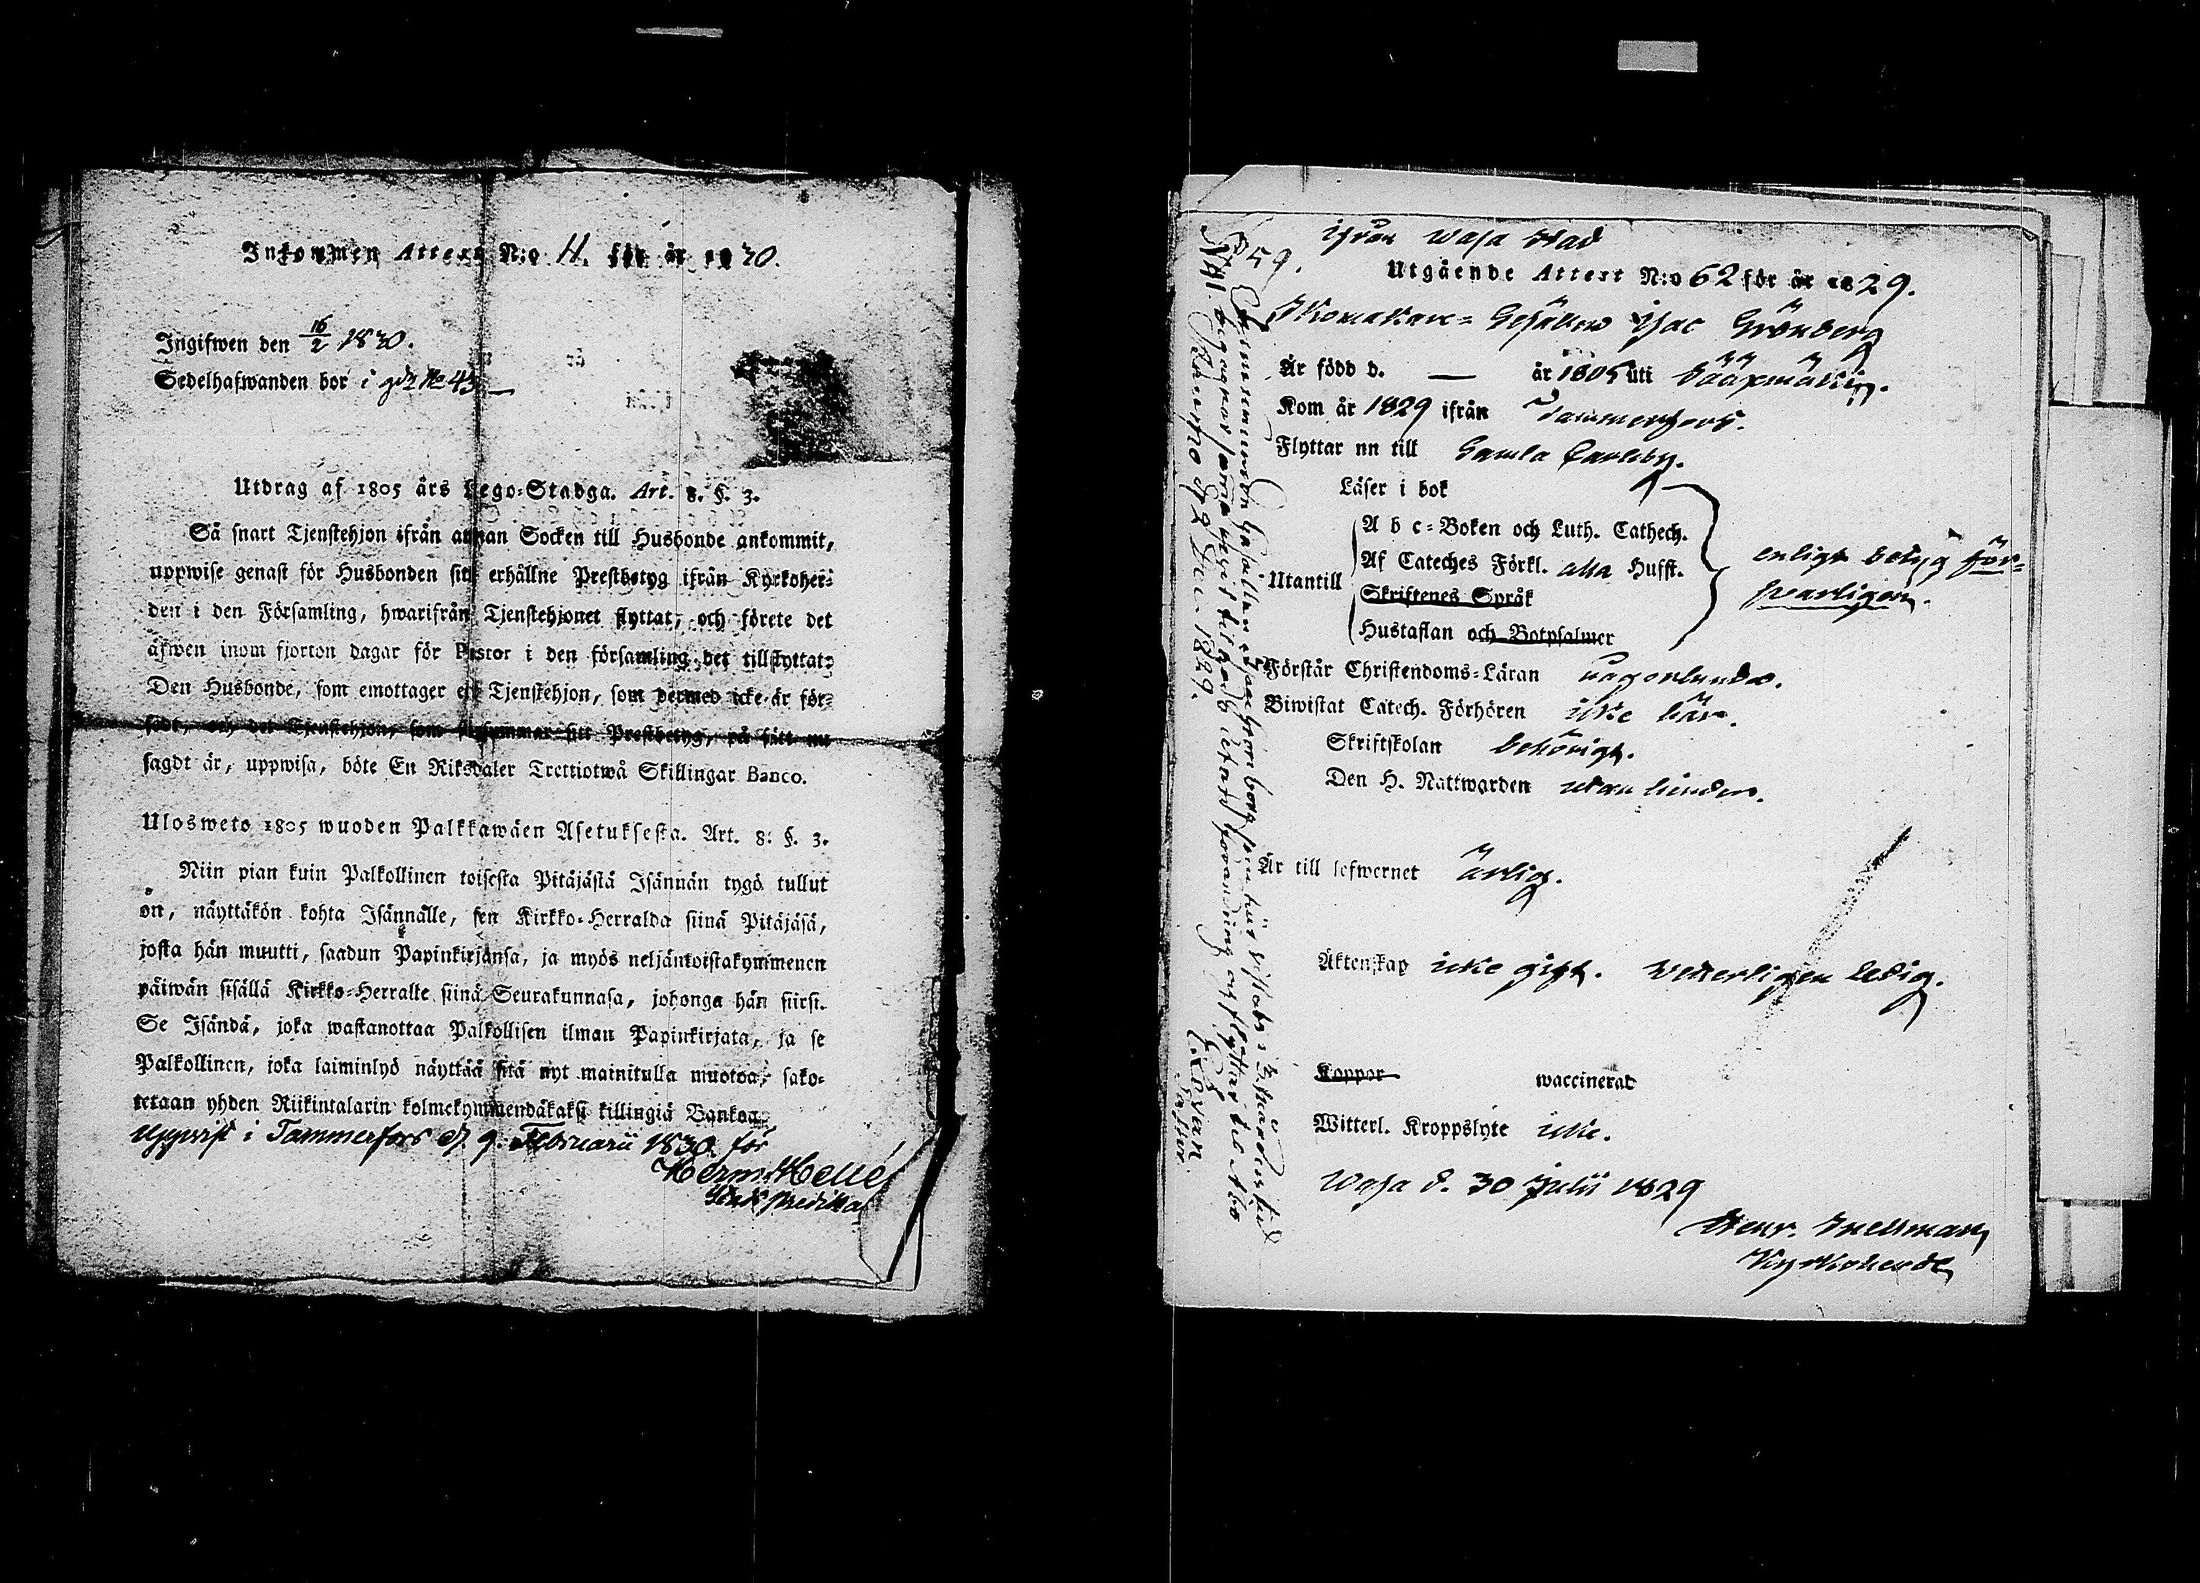 Inkommen Attest N:o 11. för år 1830.
Ingifwen den 16/2 1830.
Sedelhafwanden bor i gdn No 43
Utdrag af 1805 års Lego-Stadga. Art. 8. §. 3.
Så snart Tjenstehjon ifrån annan Socken till Husbonde ankommit,
uppwise genast för Husbonden sitt erhållne Prestbetyg ifrån Kyrkoher-
den i den Församling, hwarifrån Tjenstehjonet flyttat, och förete det
äfwen inom fjorton dagar för Pastor i den församling det tillflyttat;
Den Husbonde, som emottager ett Tjenstehjon, som dermed icke är för-
sedt, och det Tjenstehjon, som försummar sitt Prestbetyg, på sätt nu
sagdt är, uppwisa, böte En Riksdaler Trettiotwå Skillingar Banco.
Ulosweto 1805 wuoden Palkkawäen Asetuksesta. Art. 8: §. 3.
Niin pian kuin Palkollinen toisesta Pitäjästä Isännän tygö tullut
on, näyttäkön kohta Isännälle, sen Kirkko-Herralda siinä Pitäjäsä,
josta hän muutti, saadun Papinkirjansa, ja myös neljäntoistakymmenen
päiwän sisällä Kirkko-Herralle siinä Seurakunnasa, johonga hän siirsi.
Se Isändä, joka wastanottaa Palkollisen ilman Papinkirjata, ja se
Palkollinen, joka laiminlyö näyttää sitä nyt mainitulla muotoa, sako-
tetaan yhden Riikintalarin kolmekymmendäkaksi killingiä Bankoa.
Uppwist i Tammerfors d. 9. Februarii 1830. för
Herm. Hellé
ifrån Wasa Stad
Utgående Attest N:o 62 för år 1829.
Skomakare-Gesällen Isac Grönberg
Är född d. — år 1805 uti Sääxmäki.
Kom år 1829 ifrån Tammerfors.
Flyttar nu till Gamla Carleby.
Läser i bok
Utantill
A b c-Boken och Luth. Cathech.
Af Cateches Förkl. alla Hufst.
Skriftenes Språk
Hustaflan och Botpsalmer
enligt betyg för-
swarligen.
Förstår Christendoms-Läran någorlunda.
Biwistat Catech. Förhören icke här.
Skriftskolan behörigt.
Den H. Nattwarden utan hinder.
Är till lefwernet ärlig.
Äktenskap icke gift. Witterligen ledig.
Koppor waccinerad
Witterl. Kroppslyte icke.
Wasa d. 30 Julii 1829
Henr. Snellman
Kyrkoherde
N 59.